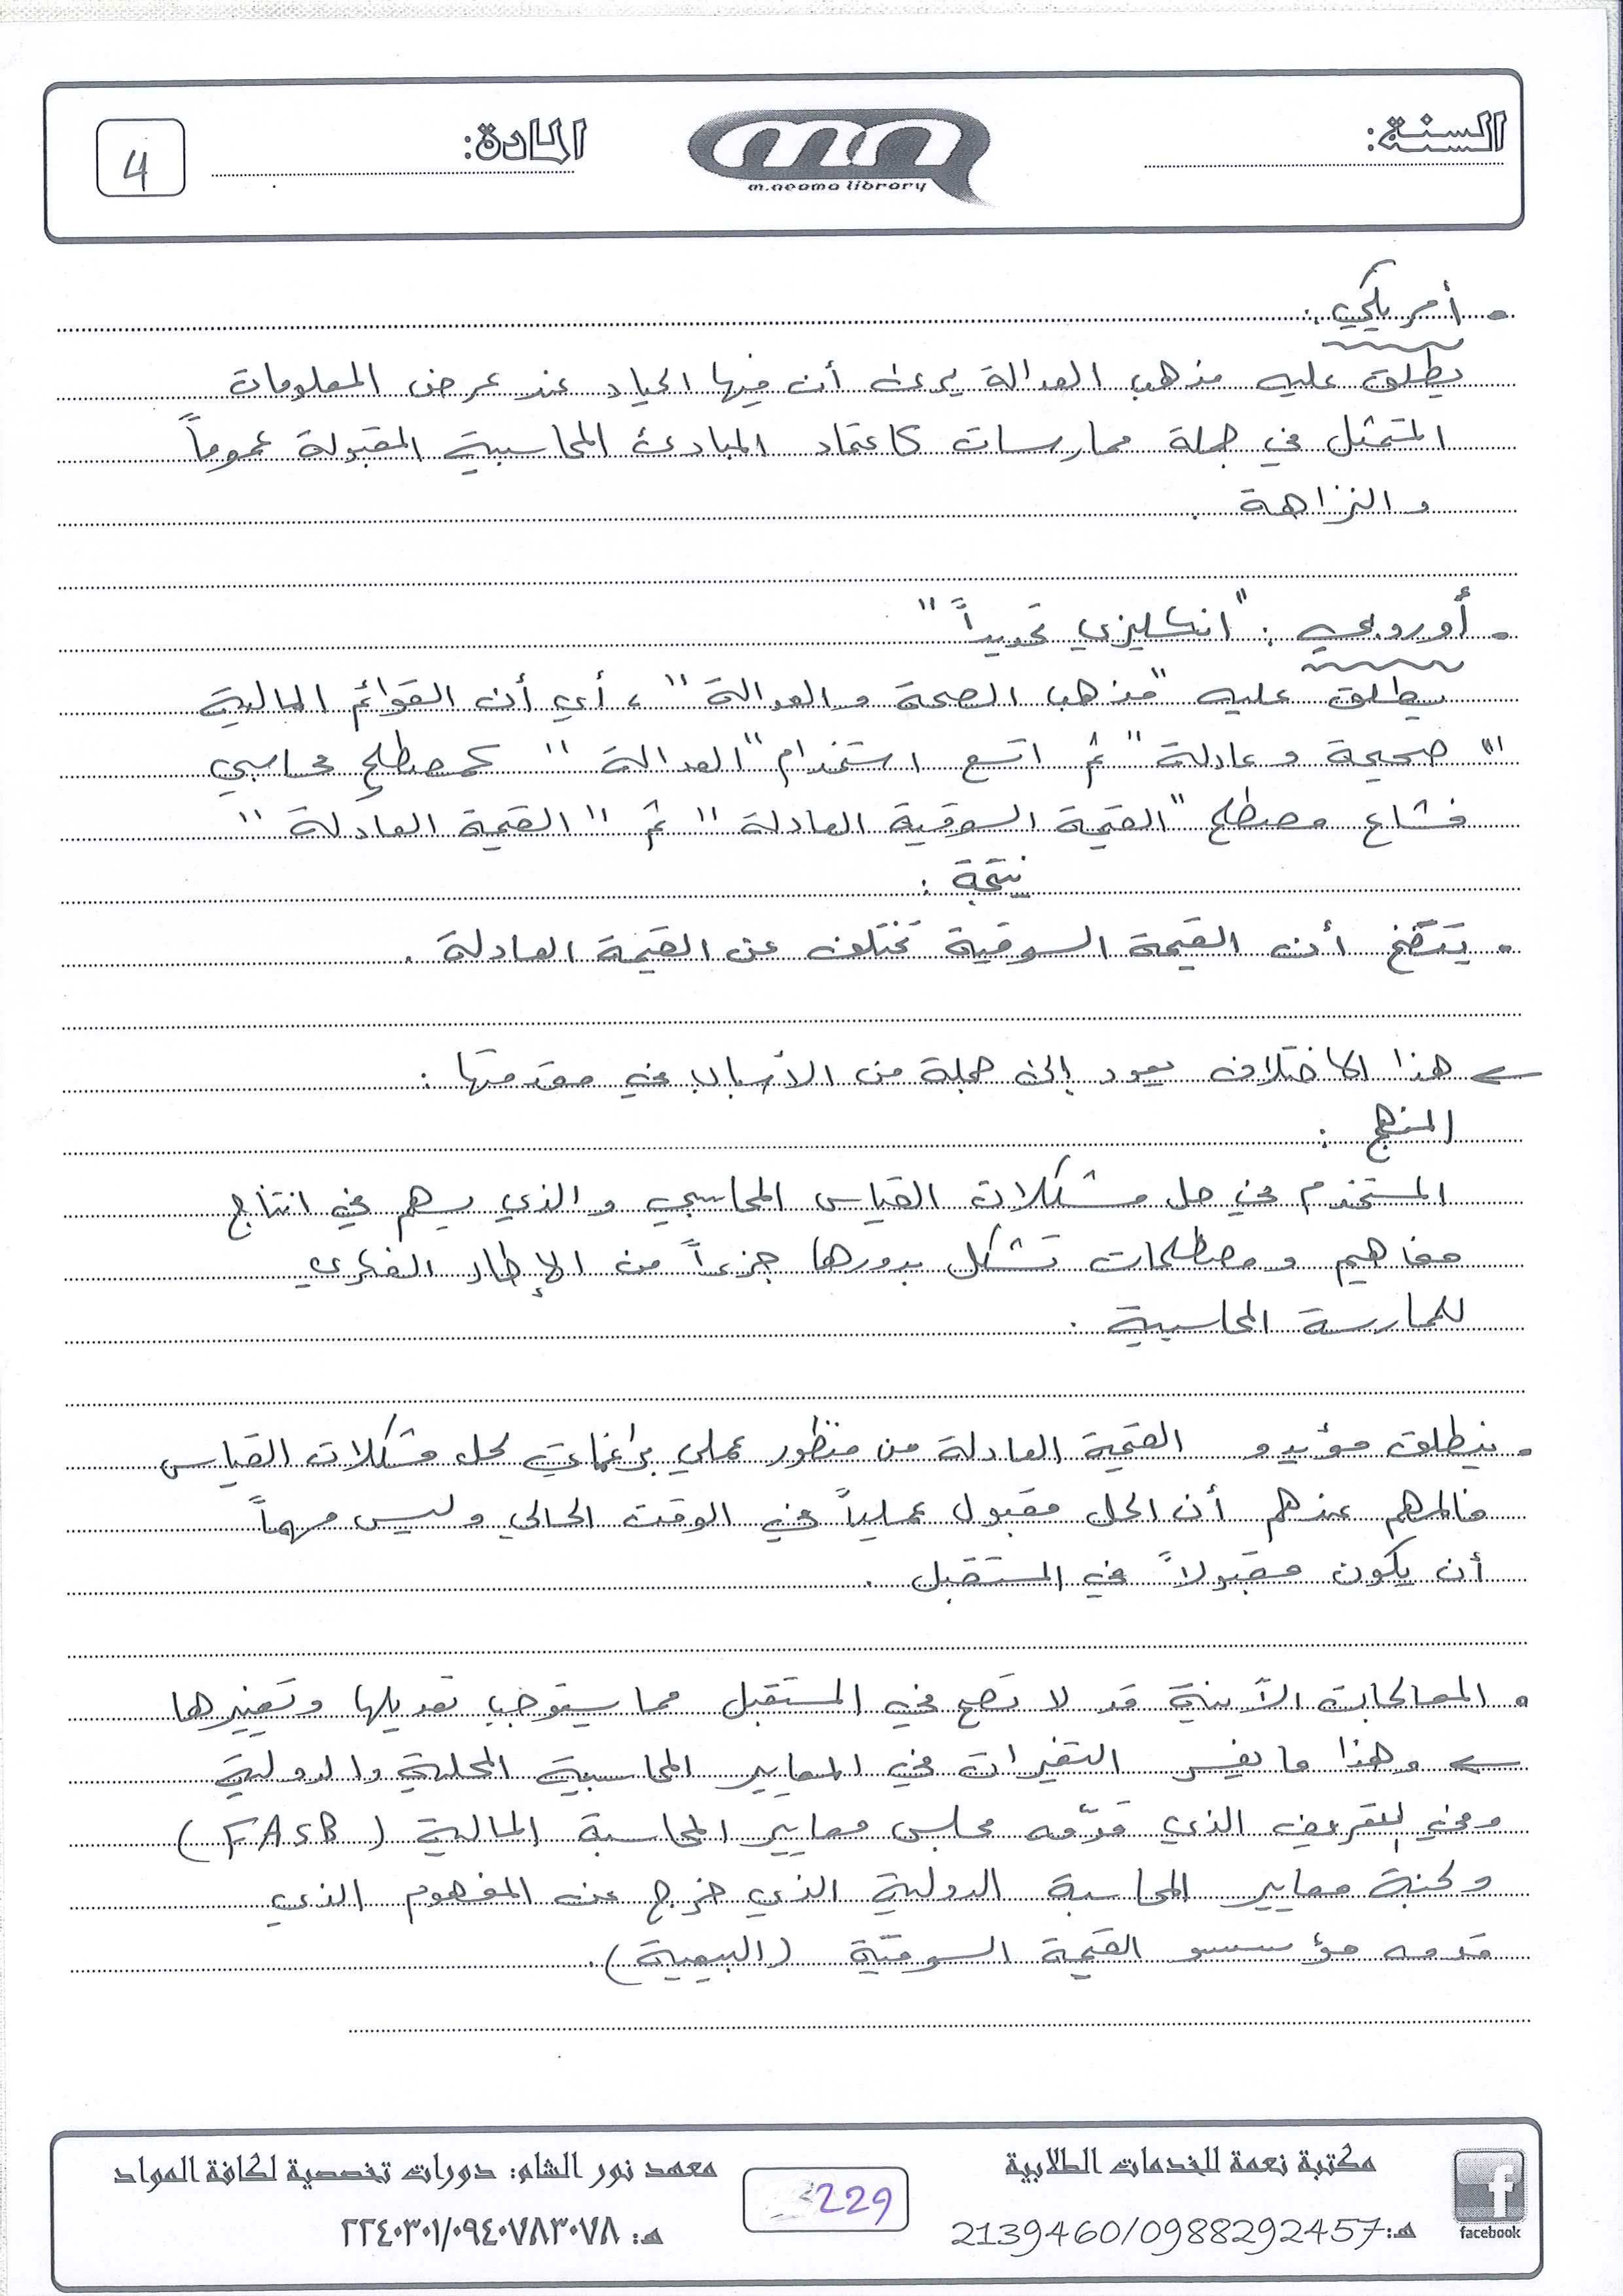 السنة:
m.neama library
المادة:
4
• أمريكي:
يطلق عليه مذهب العدالة يرى أن فيها الحياد عند عرض المعلومات
المتمثل في جملة ممارسات كاعتماد المبادئ المحاسبية المقبولة عموماً
والنزاهة.
• أوروبي: "انكليزي تحديداً"
يطلق عليه "مذهب الصحة والعدالة"، أي أن القوائم المالية
"صحيحة وعادلة" ثم اتسع استخدام "العدالة" كمصطلح محاسبي
فشاع مصطلح "القيمة السوقية العادلة" ثم "القيمة العادلة"
نتيجة:
• يتضح أن القيمة السوقية تختلف عن القيمة العادلة.
← هذا الاختلاف يعود إلى جملة من الأسباب في مقدمتها:
المنهج:
المستخدم في حل مشكلات القياس المحاسبي والذي يسهم في انتاج
مفاهيم ومصطلحات تشكل بدورها جزءاً من الإطار الفكري
للممارسة المحاسبية.
• ينطلق مؤيدو القيمة العادلة من منظور عملي براغماتي لحل مشكلات القياس
فالمهم عندهم أن الحل مقبول عملياً في الوقت الحالي وليس مهماً
أن يكون مقبولاً في المستقبل.
• المعالجات الآنية قد لا تصح في المستقبل مما يستوجب تعديلها وتغييرها
← وهذا ما يفسر التغيرات في المعايير المحاسبية المحلية والدولية
وفي التعريف الذي قدّمه مجلس معايير المحاسبة المالية (FASB)
ولجنة معايير المحاسبة الدولية الذي خرج عن المفهوم الذي
قدمه مؤسسو القيمة السوقية (البيعية).
مكتبة نعمة للخدمات الطلابية
هـ: 2139460/0988292457
facebook
229
معهد نور الشام: دورات تخصصية لكافة المواد
هـ: ٢٢٤٠٣٠١/٠٩٤٠٧٨٣٠٧٨